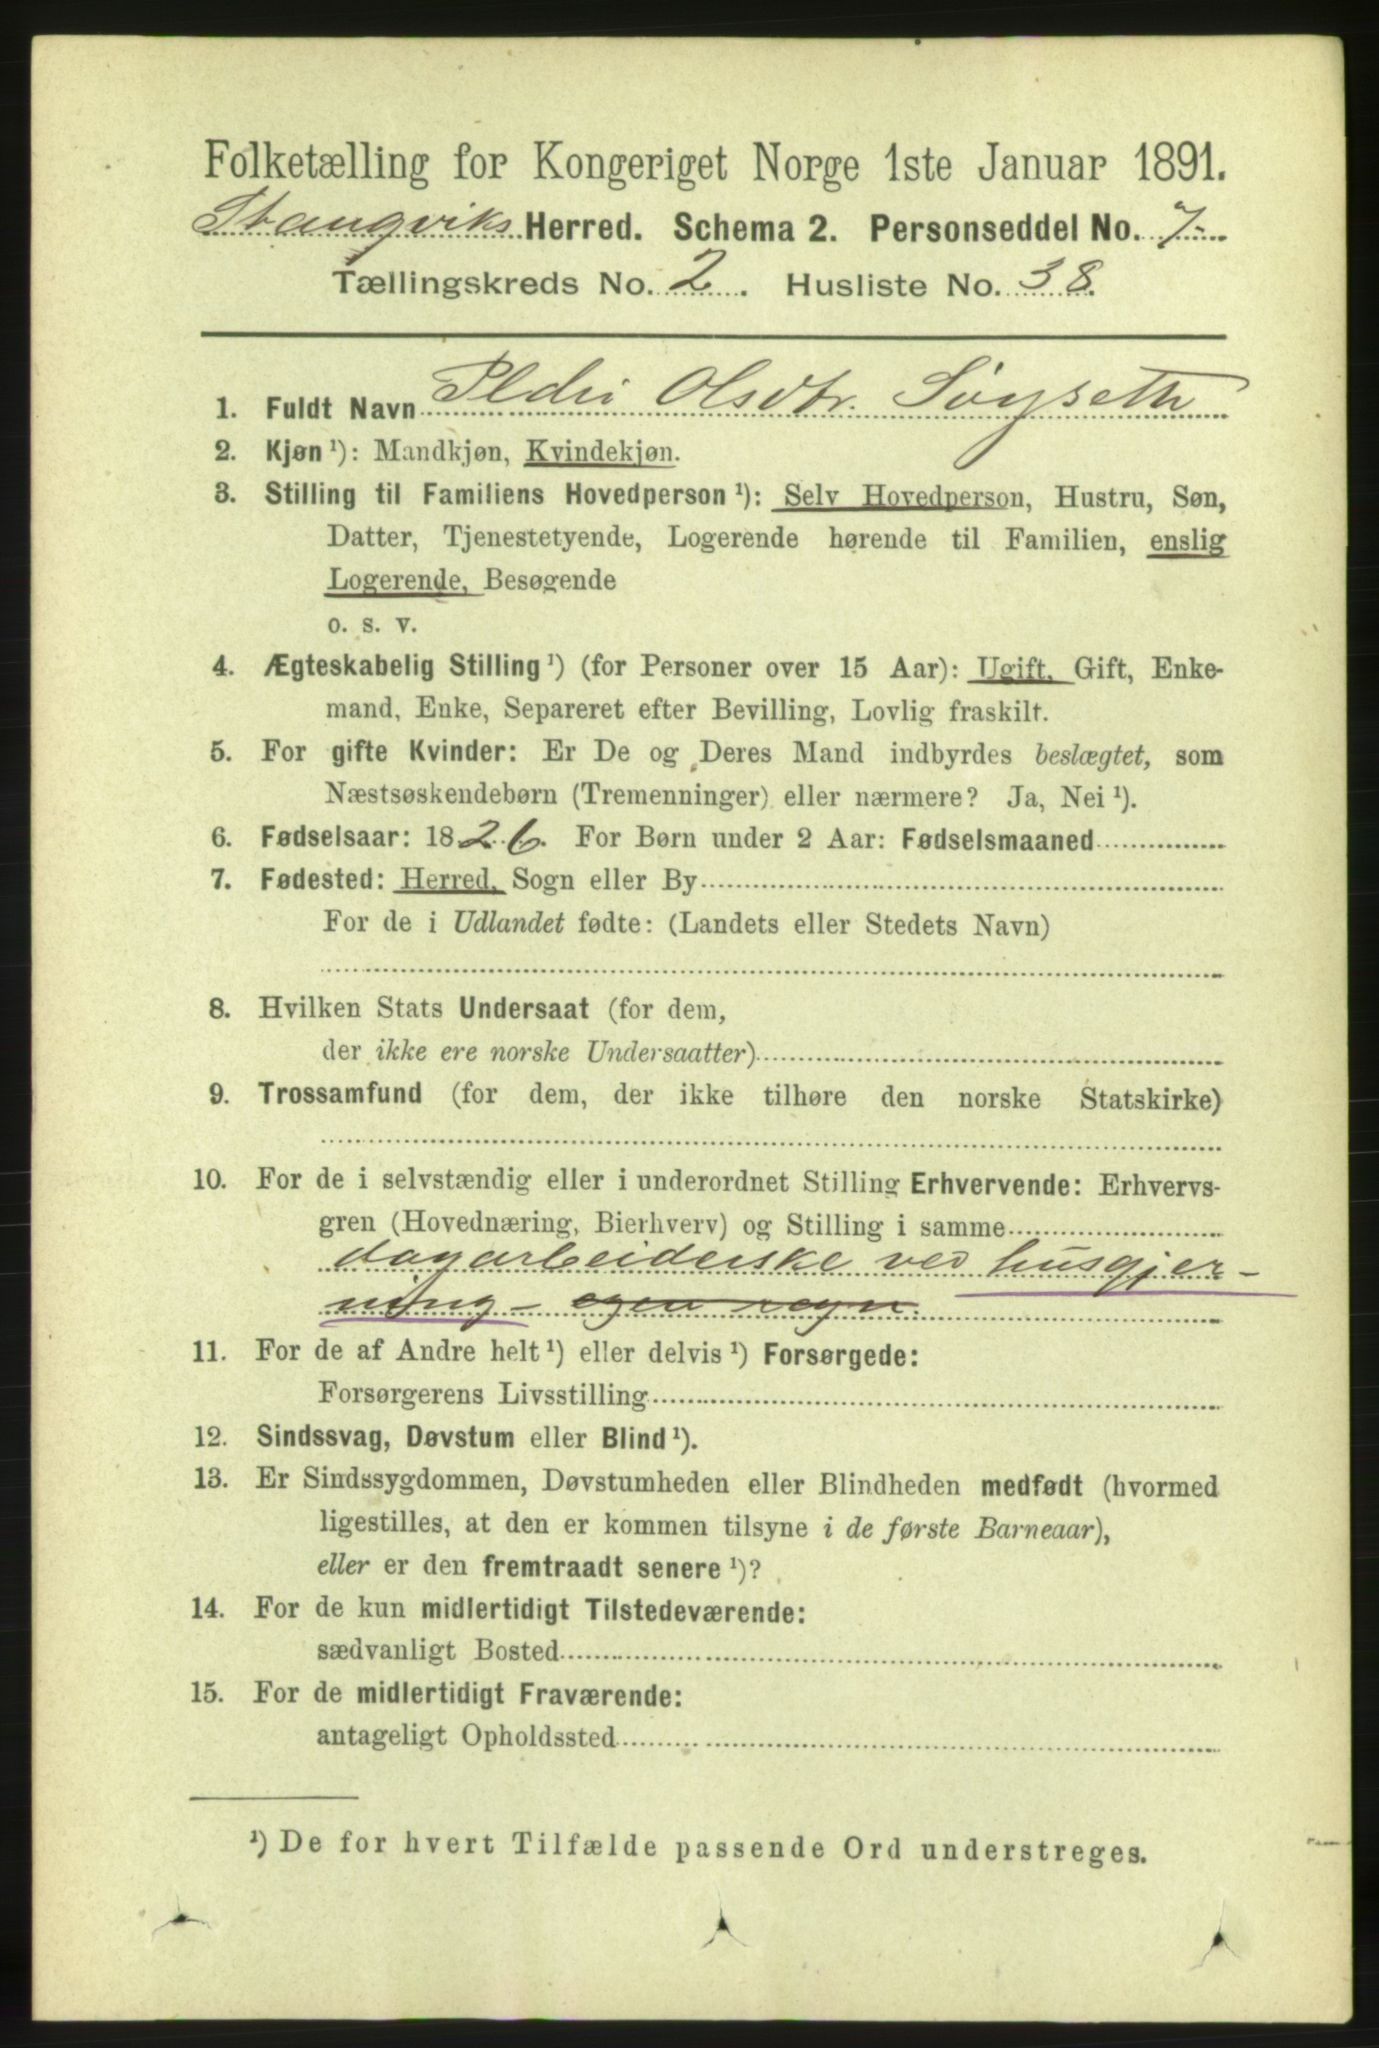 Folketælling for Kongeriget Norge 1ste Januar 1891.
Stangviks Herred. Schema 2. Personseddel No. 7
Tællingskreds No. 2. Husliste No. 38.
1. Fuldt Navn Ildri Olsdtr. Søyseth
2. Kjøn ¹): Mandkjøn, Kvindekjøn.
3. Stilling til Familiens Hovedperson ¹): Selv Hovedperson, Hustru, Søn,
Datter, Tjenestetyende, Logerende hørende til Familien, enslig
Logerende, Besøgende
o. s. v.
4. Ægteskabelig Stilling ¹) (for Personer over 15 Aar): Ugift, Gift, Enke-
mand, Enke, Separeret efter Bevilling, Lovlig fraskilt.
5. For gifte Kvinder: Er De og Deres Mand indbyrdes beslægtet, som
Næstsøskendebørn (Tremenninger) eller nærmere? Ja, Nei ¹).
6. Fødselsaar: 1826. For Børn under 2 Aar: Fødselsmaaned
7. Fødested: Herred, Sogn eller By
For de i Udlandet fødte: (Landets eller Stedets Navn)
8. Hvilken Stats Undersaat (for dem,
der ikke ere norske Undersaatter)
9. Trossamfund (for dem, der ikke tilhøre den norske Statskirke)
10. For de i selvstændig eller i underordnet Stilling Erhvervende: Erhvervs-
gren (Hovednæring, Bierhverv) og Stilling i samme
dagarbeiderske ved husgjer-
ning - egen regn.
11. For de af Andre helt ¹) eller delvis ¹) Forsørgede:
Forsørgerens Livsstilling
12. Sindssvag, Døvstum eller Blind ¹).
13. Er Sindssygdommen, Døvstumheden eller Blindheden medfødt (hvormed
ligestilles, at den er kommen tilsyne i de første Barneaar),
eller er den fremtraadt senere ¹)?
14. For de kun midlertidigt Tilstedeværende:
sædvanligt Bosted
15. For de midlertidigt Fraværende:
antageligt Opholdssted
¹) De for hvert Tilfælde passende Ord understreges.